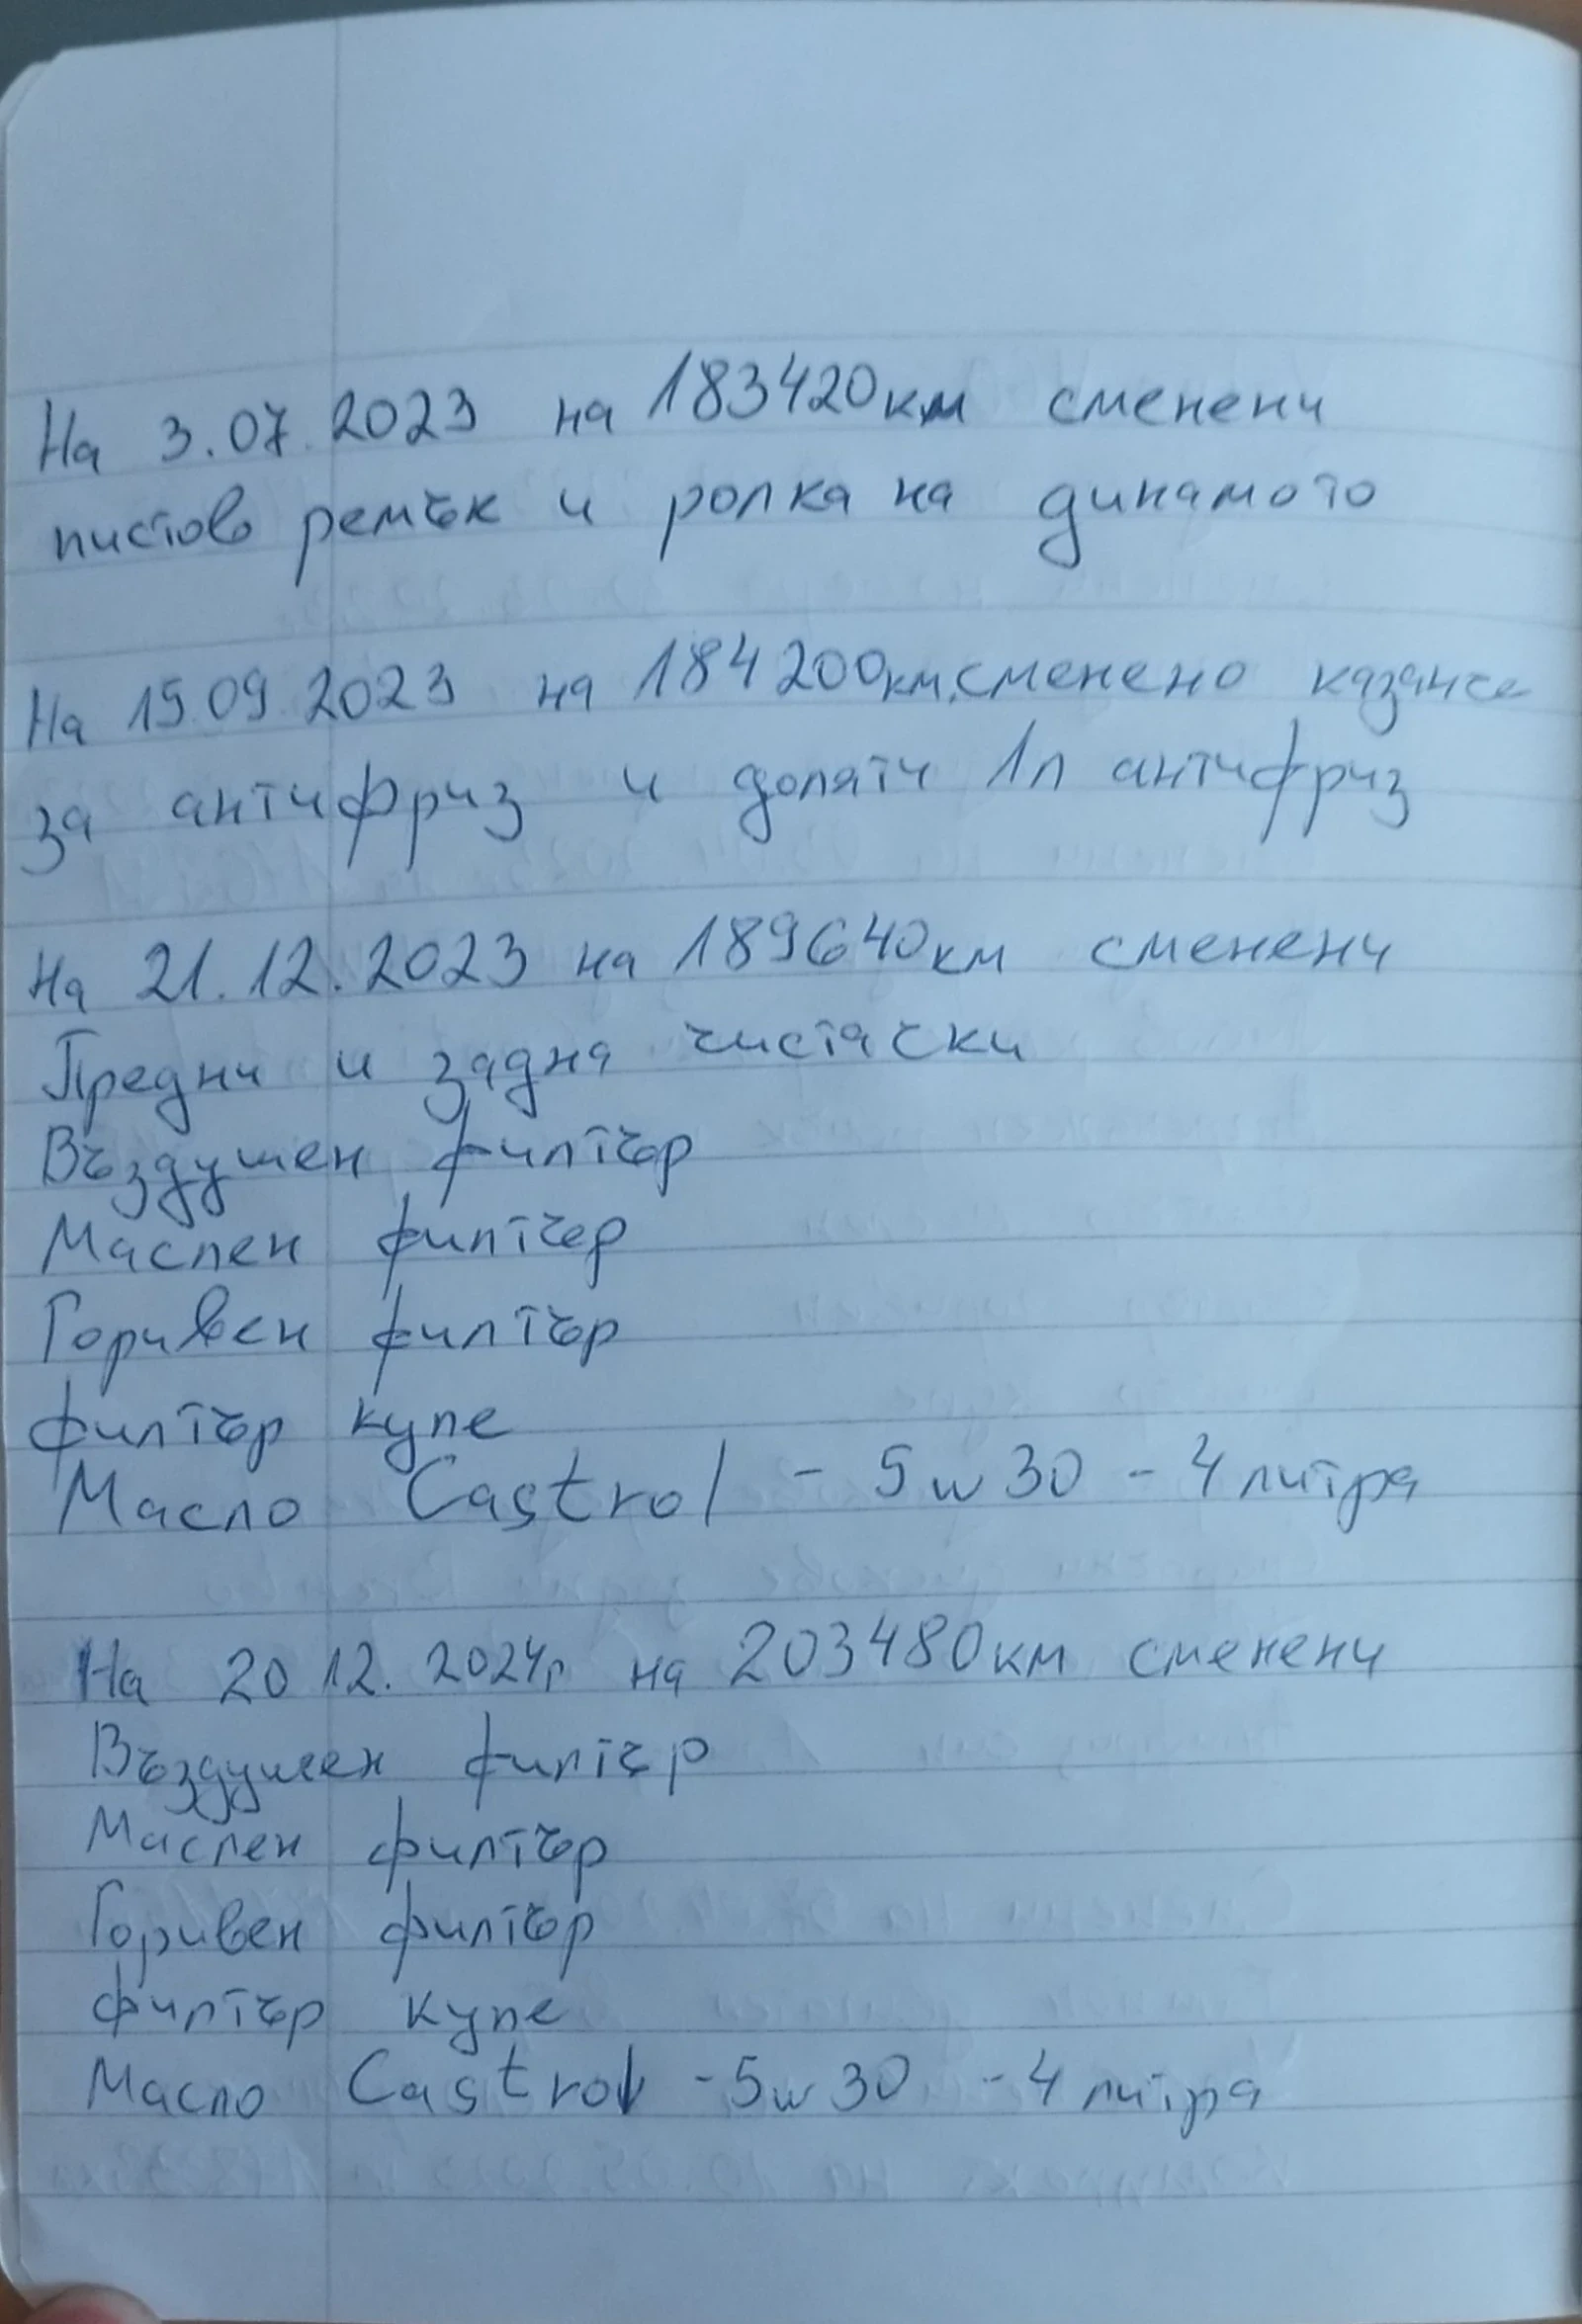 На 3.07.2023 на 183420км сменени
пистов ремък и ролка на динамото
На 15.09.2023 на 184200км.сменено казанче
за антифриз и доляти 1л антифриз
На 21.12.2023 на 189640км сменени
Предни и задна чистачки
Въздушен филтър
Маслен филтър
Горивен филтър
филтър купе
Масло Castrol - 5w30 - 4 литра
На 20 12. 2024г на 203480км сменени
Въздушен филтър
Маслен филтър
Горивен филтър
филтър купе
Масло Castrol - 5w30 - 4 литра